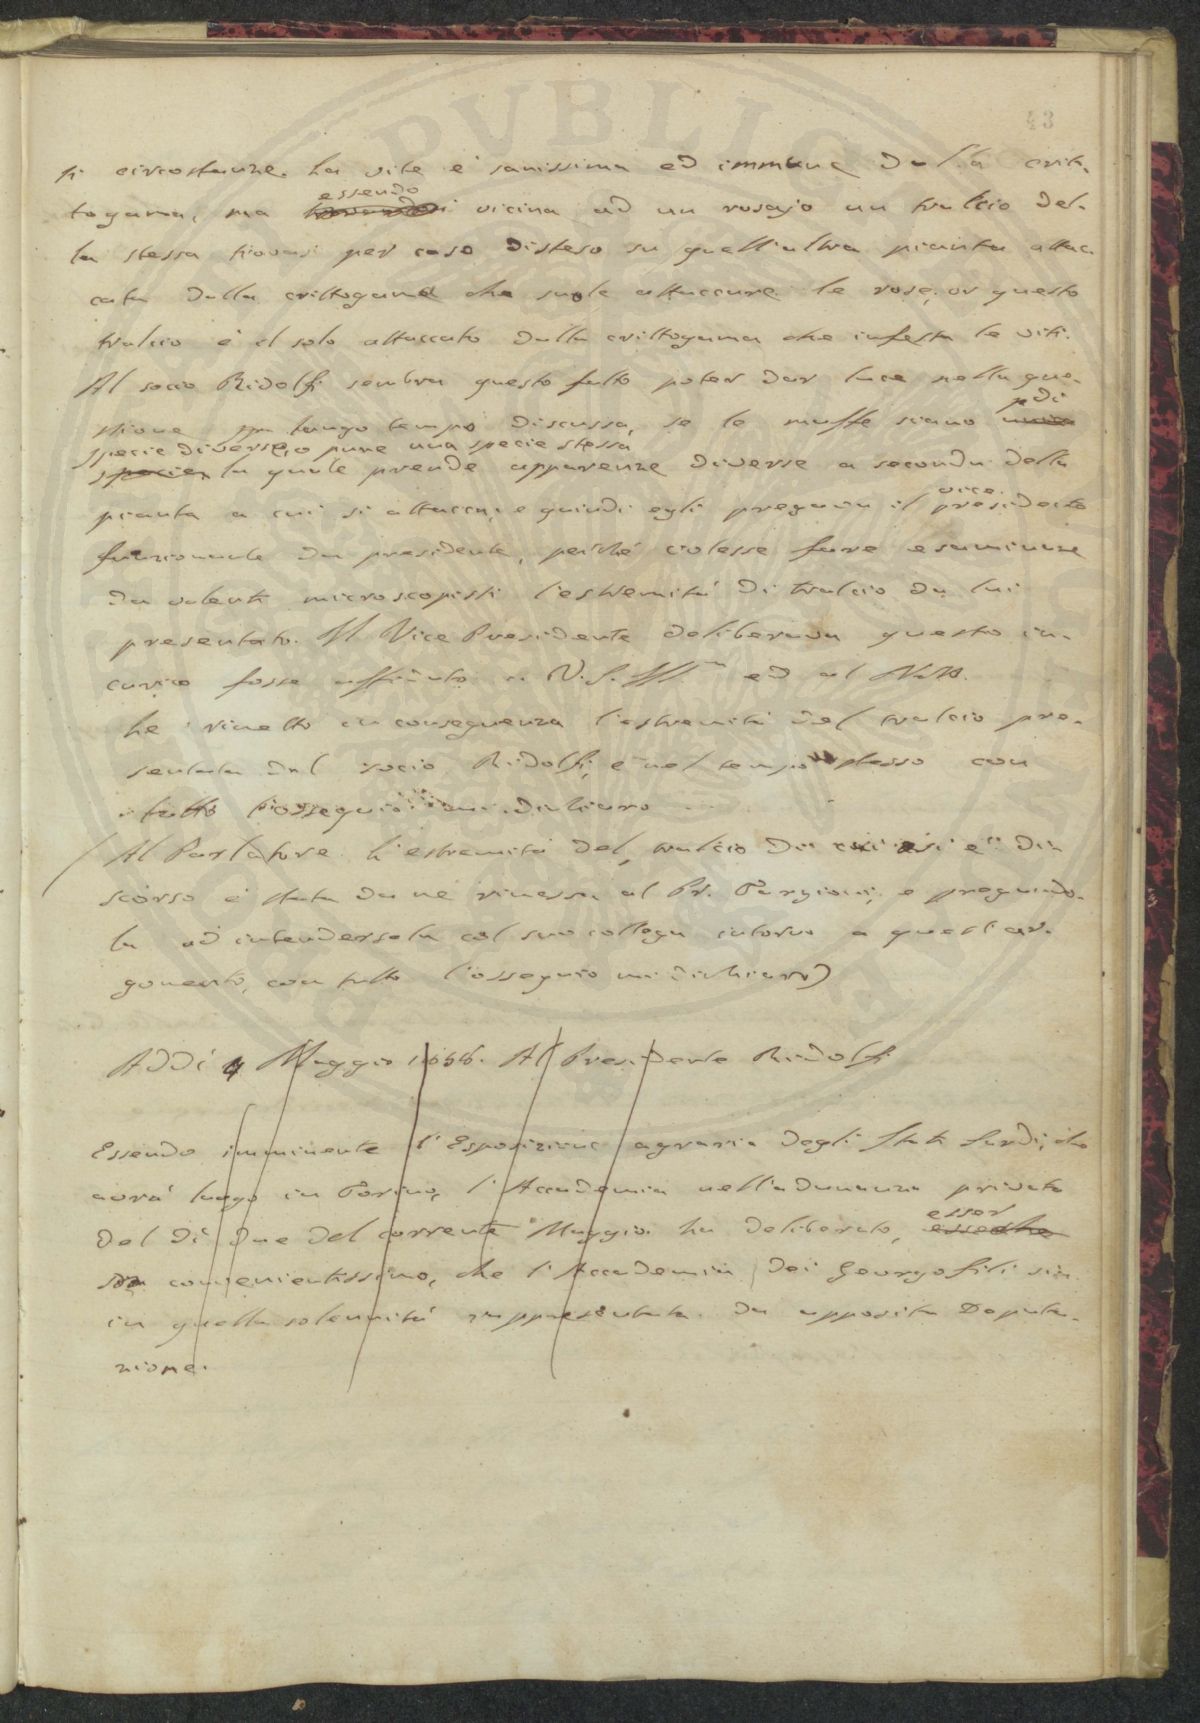 43
ti circostanze. La vite è sanissima ed immune dalla crit-
togama, ma essendo vicina ad un rosajo un tralcio del-
la stessa trovasi per caso disteso su quell'altra pianta attac
cata dalla crittogama che suole attaccare le rose, or questo
tralcio è il solo attaccato dalla crittogama che infesta le viti.
Al socio Ridolfi sembra questo fatto poter dar luce nella que-
stione lungo tempo discussa, se le muffe siano di
specie diverse, o pure una specie stessa
la quale prende apparenze diverse a seconda della
pianta a cui si attacca, e quindi egli pregava il vice presidente
funzionante da presidente, perché volesse fare esaminare
da valenti microscopisti l'estremità di tralcio da lui
presentato. Il Vice Presidente deliberava questo in-
carico fosse affidato a V. S. Ill.ma ed al
Le rimetto in conseguenza l'estremità del tralcio pre-
sentata dal socio Ridolfi, e nel tempo stesso con
tutto l'ossequio mi dichiaro
(Al Parlatore. L'estremità del tralcio di cui si è di-
scorso è stata da me rimessa al Pr. Targioni, e pregando-
la ad intendersela col suo collega intorno a quest'ar-
gomento, con tutto l'ossequio mi dichiaro)
Addì 4 Maggio 1858. Al Presidente Ridolfi
Essendo imminente l'Esposizione agraria degli Stati Sardi, che
avrà luogo in Torino, l'Accademia nell'adunanza privata
del dì due del corrente Maggio ha deliberato, esser
convenientissimo, che l'Accademia dei Georgofili sia
in quella solennità rappresentata da apposita Deputa-
zione.